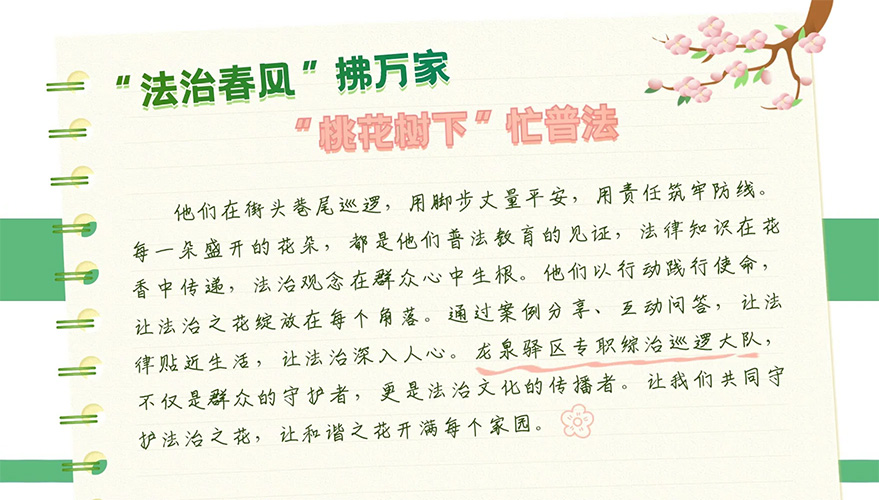 “法治春风”拂万家
“桃花树下”忙普法
他们在街头巷尾巡逻，用脚步丈量平安，用责任筑牢防线。
每一朵盛开的花朵，都是他们普法教育的见证，法律知识在花
香中传递，法治观念在群众心中生根。他们以行动践行使命，
让法治之花绽放在每个角落。通过案例分享、互动问答，让法
律贴近生活，让法治深入人心。龙泉驿区专职综治巡逻大队，
不仅是群众的守护者，更是法治文化的传播者。让我们共同守
护法治之花，让和谐之花开满每个家园。